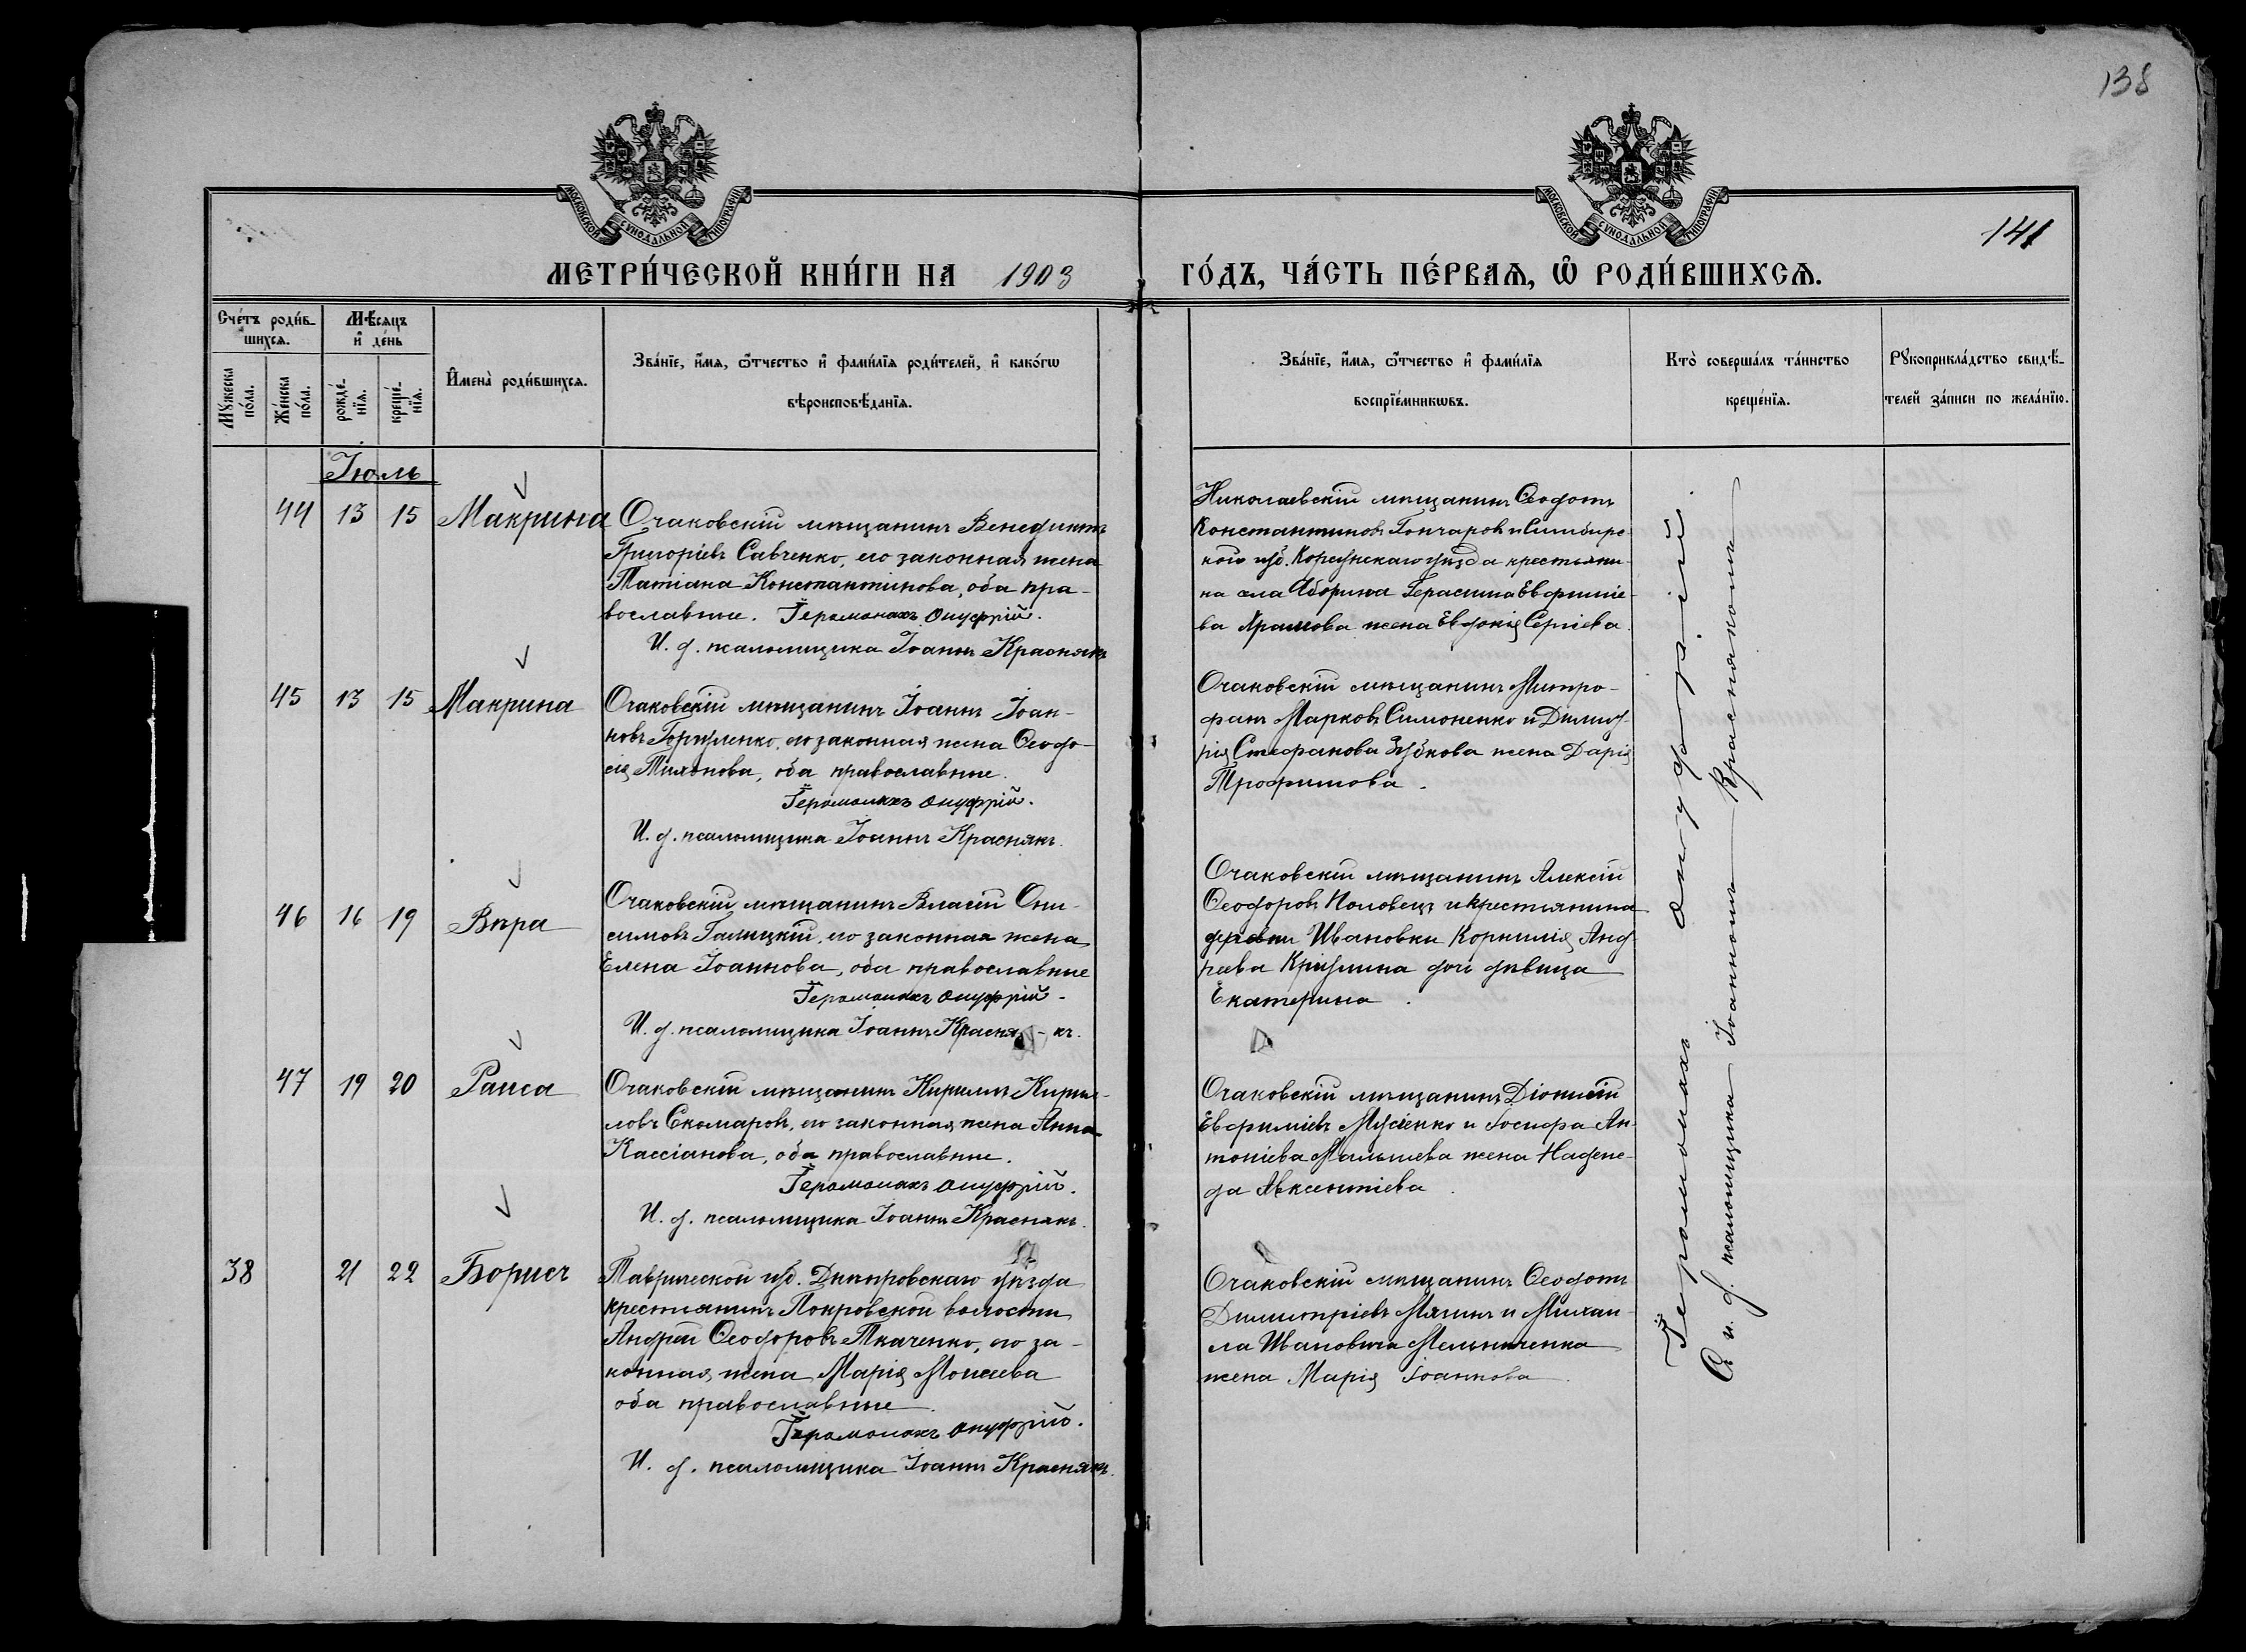 138
141
МОСКОВСКОЙ СѴНОДАЛЬНОЙ ТИПОГРАФІИ
МОСКОВСКОЙ СѴНОДАЛЬНОЙ ТИПОГРАФІИ
МЕТРИ́ЧЕСКОЙ КНИ́ГИ НА 1903 ГО́ДЪ, ЧА́СТЬ ПЕ́РВАѦ, Ѡ҆ РОДИ́ВШИХСѦ.
Сче́тъ роди́в-
шихсѧ.
Мꙋжеска
по́ла.
Же́нска
по́ла.
Мѣ́сѧцъ
и҆ де́нь
рожде́-
нїѧ.
креще́-
нїѧ.
И҆мена̀ роди́вшихсѧ.
Зва́нїе, и҆́мѧ, ѻ҆́тчество и҆ фами́лїѧ роди́телей, и҆ како́гѡ
вѣроисповѣ́данїѧ.
Зва́нїе, и҆́мѧ, ѻ҆́тчество и҆ фами́лїѧ
воспрїе́мникѡвъ.
Кто̀ соверша́лъ та́инство
креще́нїѧ.
Рꙋкоприкла́дство свидѣ́-
телей за́писи по жела́нїю.
Іюль
44 13 15 Макрина
Очаковскій мѣщанинъ Венедиктъ
Григоріевъ Савченко, его законная жена
Татіана Константинова, оба пра-
вославные. Іеромонахъ Онуфрій.
И. д. псаломщика Іоаннъ Краснякъ
Николаевскій мѣщанинъ Ѳеодотъ
Константиновъ Гончаровъ и Симбирс-
кой губ. Корсунскаго уѣзда крестьяни-
на села Герасима Евфиміе-
ва жена Евдокія Сергіева.
45 13 15 Макрина
Очаковскій мѣщанинъ Іоаннъ Іоан-
новъ его законная жена Ѳеодо-
сія Тихонова, оба православные.
Іеромонахъ Онуфрій.
И. д. псаломщика Іоаннъ Краснякъ.
Очаковскій мѣщанинъ Митро-
фанъ Марковъ Симоненко и Димит-
рія Стефанова Зубкова жена Дарія
Трофимова.
46 16 19 Вѣра
Очаковскій мѣщанинъ Власій Они-
симовъ Галицкій, его законная жена
Елена Іоаннова, оба православные
Іеромонахъ Онуфрій.
И. д. псаломщика Іоаннъ Красня-къ.
Очаковскій мѣщанинъ Алексій
Ѳеодоровъ Половецъ и крестьянина
Ивановки Корнилія Анд-
реева дочь дѣвица
Екатерина.
47 19 20 Раиса
Очаковскій мѣщанинъ Кириллъ Кирил-
ловъ Скомаровъ, его законная жена Анна
Кассіанова, оба православные.
Іеромонахъ Онуфрій.
И. д. псаломщика Іоаннъ Краснякъ.
Очаковскій мѣщанинъ Діонисій
Евфиміевъ Мусіенко и Іосифа Ан-
тоніева Малышева жена Надеж-
да Авксентіева.
38 21 22 Борисъ
Таврической губ. Днѣпровскаго уѣзда
крестьянинъ Покровской волости
Андрей Ѳеодоровъ Ткаченко, его за-
конная жена Марія Моисеева
оба православные.
Іеромонахъ Онуфрій.
И. д. псаломщика Іоаннъ Краснякъ.
Очаковскій мѣщанинъ Ѳеодотъ
Димитріевъ и Михаи-
ла Ивановича Мельниченка
жена Марія Іоаннова.
Іеромонахъ Онуфрій.
Съ и. д. псаломщика Іоанномъ Краснякомъ